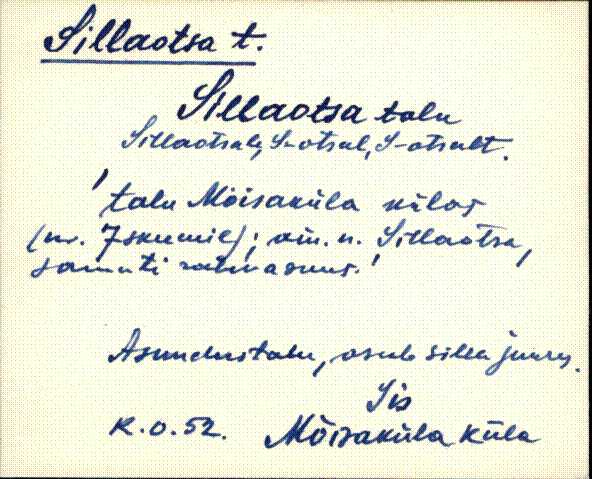 Sillaotsa t.
Sillaotsa talu
Sillaotsale, S-otsal, S-otsalt.
'talu Mõisaküla külas
(nr. 7 skeemil); am. n. Sillaotsa,
samuti rahvasuus.'
Asundustalu, asub silla juures.
Jis
K.O.52. Mõisaküla küla